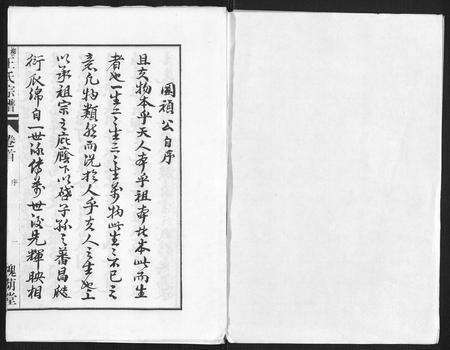 國禎公自序
且夫物本乎天人本乎祖本此本此而生
者也一生二二生三三生萬物此生生不已之
意凡物類然而況於人乎夫人之生也上
以承祖宗之庇廕下以啓子孫之蕃昌瓞
衍瓜綿自一世以傳萬世後先輝映相
王氏宗譜
卷首
序
一
槐蔭堂